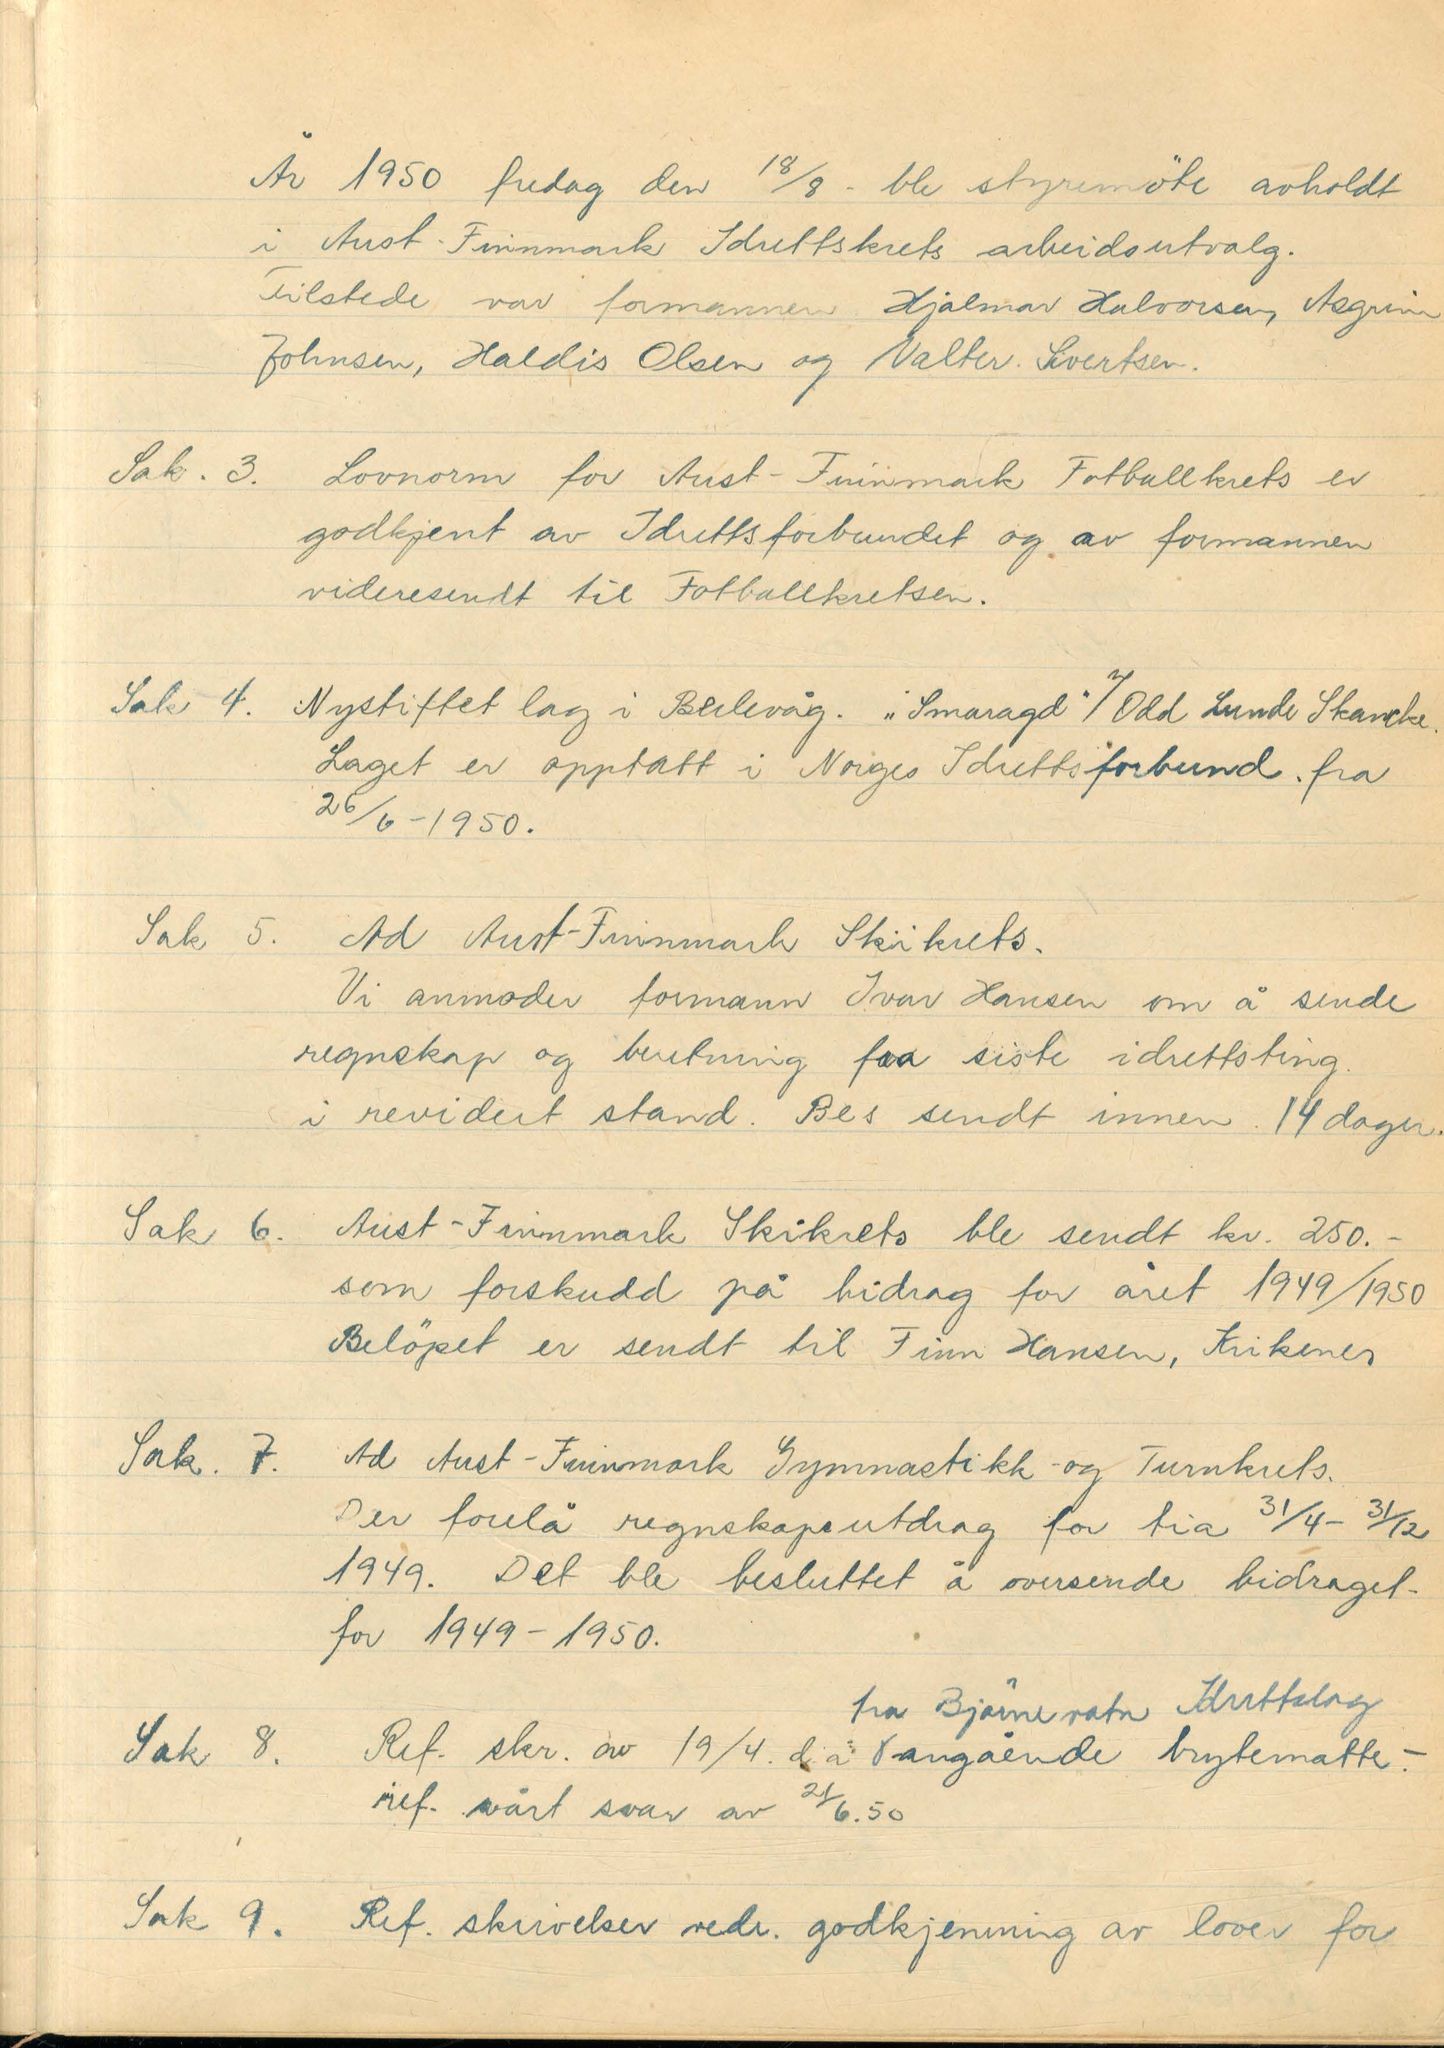 År 1950 fredag den 18/8 - ble styremöte avholdt
i Aust-Finnmark Idrettskrets arbeidsutvalg.
Tilstede var formannen Hjalmar Halvorsen, Asgrim
Johnsen, Haldis Olsen og Valter Sivertsen.
Sak. 3. Lovnorm for Aust-Finnmark Fotballkrets er
godkjent av Idrettsforbundet og av formannen
videresendt til Fotballkretsen.
Sak 4. Nystiftet lag i Berlevåg. "Smaragd" v/Odd Lunde Skancke.
Laget er opptatt i Norges Idrettsforbund fra
26/6-1950.
Sak 5. Ad Aust-Finnmark Skikrets.
Vi anmoder formann Ivar Hansen om å sende
regnskap og beretning fra siste idrettsting
i revidert stand. Bes sendt innen 14 dager.
Sak 6. Aust-Finnmark Skikrets ble sendt kr. 250.-
som forskudd på bidrag for året 1949/1950
Belöpet er sendt til Finn Hansen, Kirkenes
Sak. 7. Ad Aust-Finnmark Gymnastikk- og Turnkrets.
Der forelå regnskapsutdrag for tia 31/4 - 31/12
1949. Det ble besluttet å oversende bidraget
for 1949-1950.
fra Bjørnevatn Idrettslag
Sak 8. Ref. skr. av 19/4. d.å. angående brytematte.-
ref. vårt svar av 21/6.50
Sak 9. Ref. skrivelser vedr. godkjenning av lover for